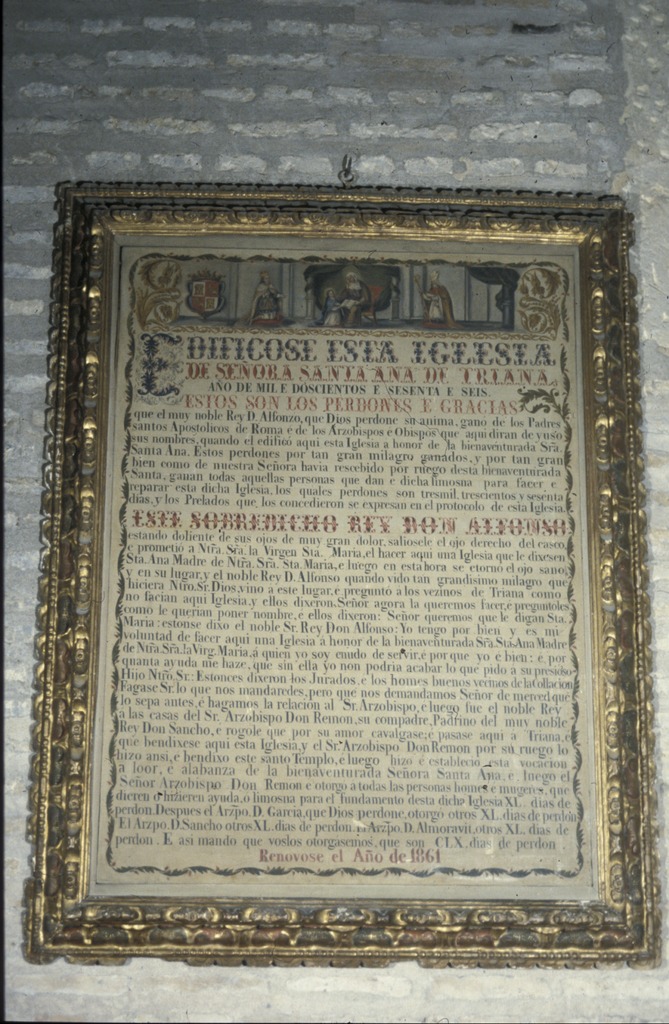 EDIFICOSE ESTA IGLESIA
DE SEÑORA SANTA ANA DE TRIANA,
AÑO DE MIL E DOSCIENTOS E SESENTA E SEIS.
ESTOS SON LOS PERDONES E GRACIAS
que el muy noble Rey D. Alfonzo, que Dios perdone su anima, gano de los Padres
santos Apostolicos de Roma é de los Arzobispos é Obispos que aqui diran de yuso
sus nombres, quando el edificó aqui esta Iglesia a honor de la bienaventurada Sra.
Santa Ana. Estos perdones por tan gran milagro ganados, y por tan gran
bien como de nuestra Señora havia rescebido por ruego desta bienaventurada
Santa, ganan todas aquellas personas que dan é dicha limosna para facer e
reparar esta dicha Iglesia, los quales perdones son tresmil, trescientos y sesenta
dias, y los Prelados que los concedieron se expresan en el protocolo de esta Iglesia.
ESTE SOBREDICHO REY DON ALFONSO
estando doliente de sus ojos de muy gran dolor, saliosele el ojo derecho del casco,
e prometió a Ntra. Sra. la Virgen Sta. Maria, el hacer aqui una Iglesia que le dixesen
Sta. Ana Madre de Ntra. Sra. Sta. Maria, é luego en esta hora se etorno el ojo sano
y en su lugar, y el noble Rey D. Alfonso quando vido tan grandisimo milagro que
hiciera Ntro. Sr. Dios, vino a este lugar, é preguntó a los vezinos de Triana como
no facian aqui Iglesia, y ellos dixeron, Señor agora la queremos facer, é preguntoles
como le querian poner nombre, é ellos dixeron: Señor queremos que le digan Sta.
Maria: estonse dixo el noble Sr. Rey Don Alfonso: Yo tengo por bien y es mi
voluntad de facer aqui una Iglesia á honor de la bienaventurada Sra. Sta. Ana Madre
de Ntra. Sra. la Virg. Maria, á quien yo soy enudo de servir, é por que yo e bien: e por
quanta ayuda me haze, que sin ella yo non podria acabar lo que pido a su presioso
Hijo Ntro. Sr: Estonces dixeron los Jurados, e los homes buenos vecinos de la Collacion
Fagase Sr. lo que nos mandaredes, pero que nos demandamos Señor de merced que
lo sepa antes, é hagamos la relación al Sr. Arzobispo, e luego fue el noble Rey
á las casas del Sr. Arzobispo Don Remon, su compadre, Padrino del muy noble
Rey Don Sancho, e rogole que por su amor cavalgase; é pasase aqui a Triana, é
que bendixese aqui esta Iglesia, y el Sr. Arzobispo Don Remon por su ruego lo
hizo ansi, e bendixo este santo Templo, é luego hizo é establecio esta vocacion
a loor, e alabanza de la bienaventurada Señora Santa Ana, e luego el
Señor Arzobispo Don Remon e otorgo a todas las personas homes e mugeres, que
dieren o hizieren ayuda, ó limosna para el fundamento desta dicha Iglesia XL. dias de
perdon. Despues el Arzpo. D. Garcia, que Dios perdone, otorgó otros XL. dias de perdón
El Arzpo. D. Sancho otros XL. dias de perdon. El Arzpo. D. Almoravit, otros XL. dias de
perdon. E asi mando que voslos otorgasemos, que son CLX. dias de perdon
Renovose el Año de 1861